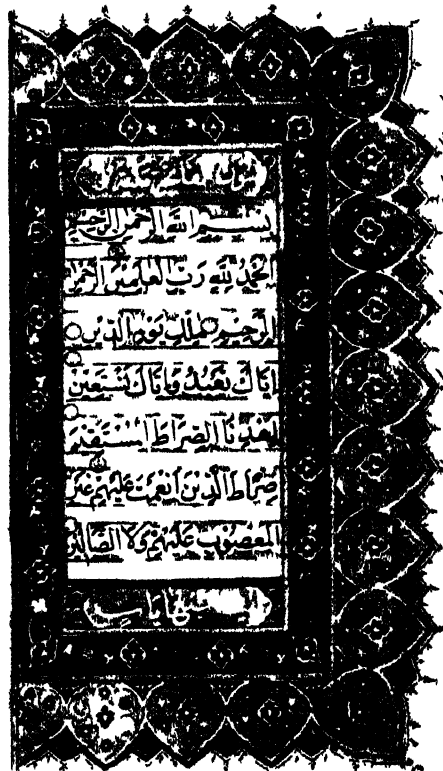 بِسْمِ اللَّهِ الرَّحْمٰنِ الرَّحِيمِ
اَلْحَمْدُ لِلَّهِ رَبِّ الْعَالَمِينَ الرَّحْمٰنِ
الرَّحِيمِ مٰلِكِ يَوْمِ الدِّينِ
اِيَّاكَ نَعْبُدُ وَاِيَّاكَ نَسْتَعِينُ
اِهْدِنَا الصِّرَاطَ الْمُسْتَقِيمَ
صِرَاطَ الَّذِينَ اَنْعَمْتَ عَلَيْهِمْ غَيْرِ
الْمَغْضُوبِ عَلَيْهِمْ وَلَا الضَّالِّينَ
سبع آيات